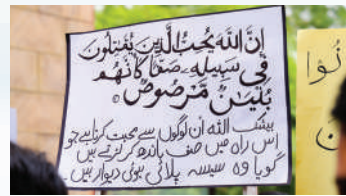 إِنَّ اللَّهَ يُحِبُّ الَّذِينَ يُقَاتِلُونَ
فِي سَبِيلِهِ صَفًّا كَأَنَّهُم
بُنْيَانٌ مَّرْصُوصٌ
بیشک اللہ ان لوگوں سے محبت کرتا ہے جو
اس راہ میں صف باندھ کر لڑتے ہیں
گویا وہ سیسہ پلائی ہوئی دیوار ہیں۔